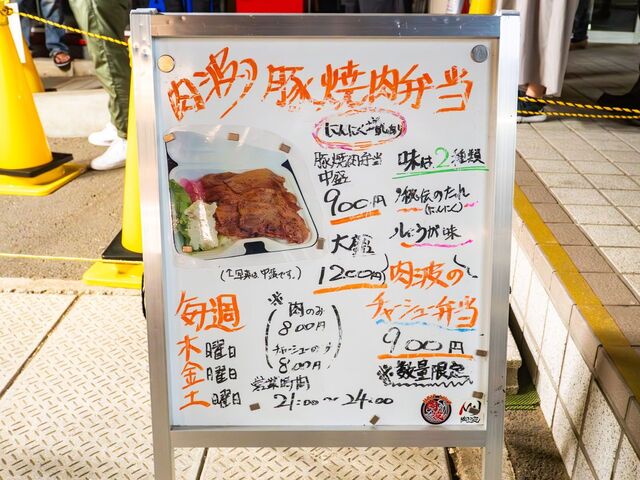 肉波の豚焼肉弁当
豚焼肉弁当
中盛
900円
大盛
1200円
(上写真は中盛です。)
味は2種類
秘伝のたれ
(にんにく)
しょうが味
肉波の
チャーシュー弁当
900円
※数量限定
毎週
木曜日
金曜日
土曜日
※
肉のみ
800円
チャーシューのみ
800円
営業時間
21:00〜24:00